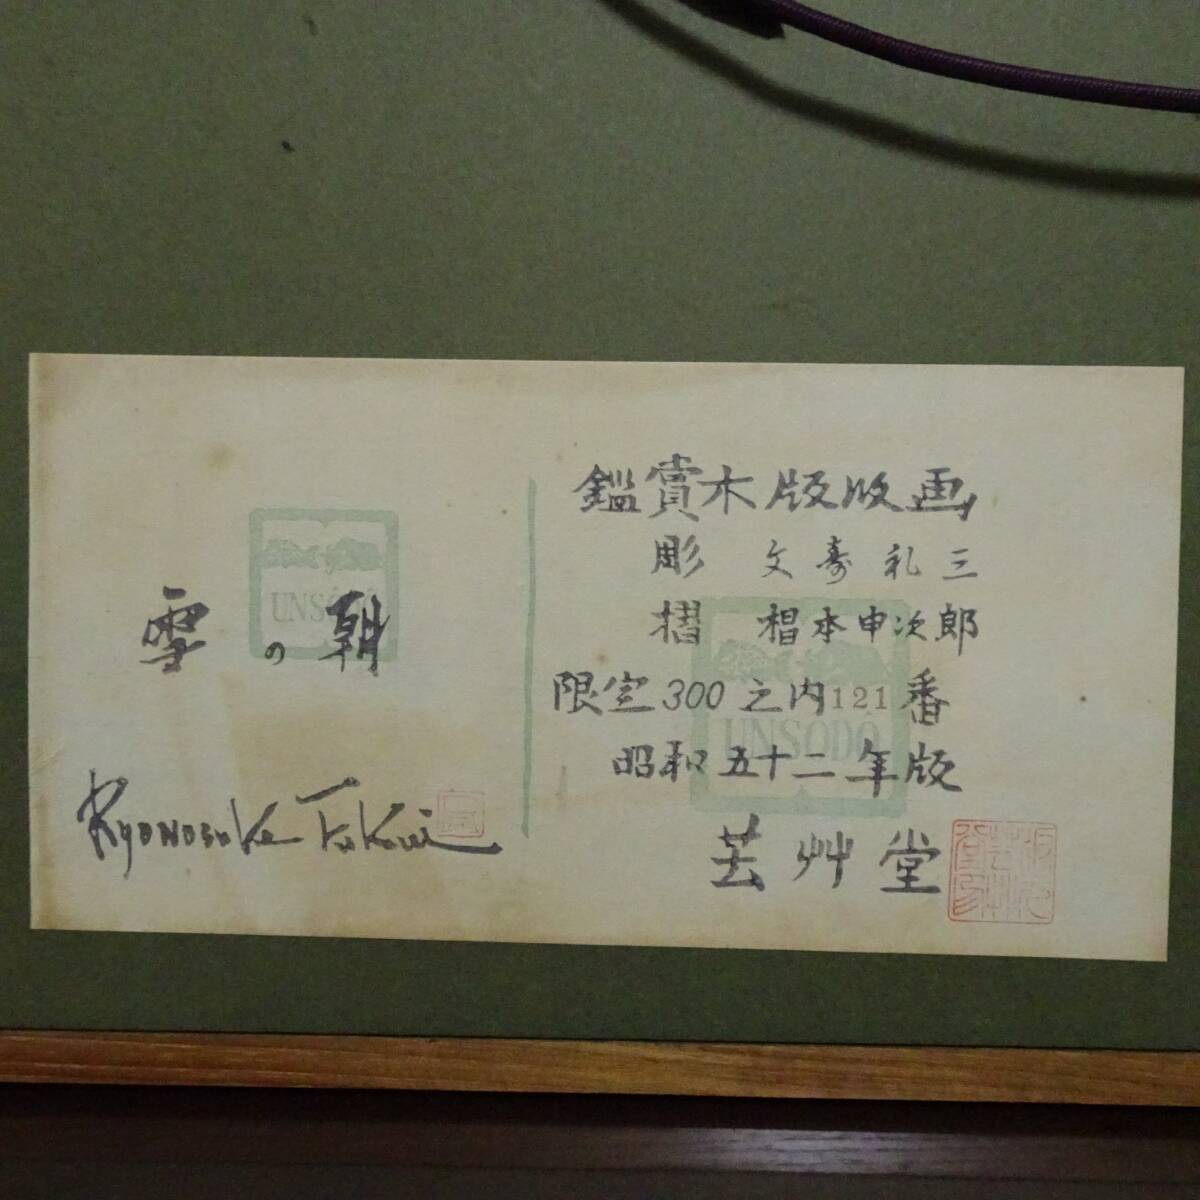 雪の朝
UNSŌDŌ
Ryonosuke Fukui
鑑賞木版版画
彫 文寿礼三
摺 椙本申次郎
限定300之内121番
UNSŌDŌ
昭和五十二年版
芸艸堂